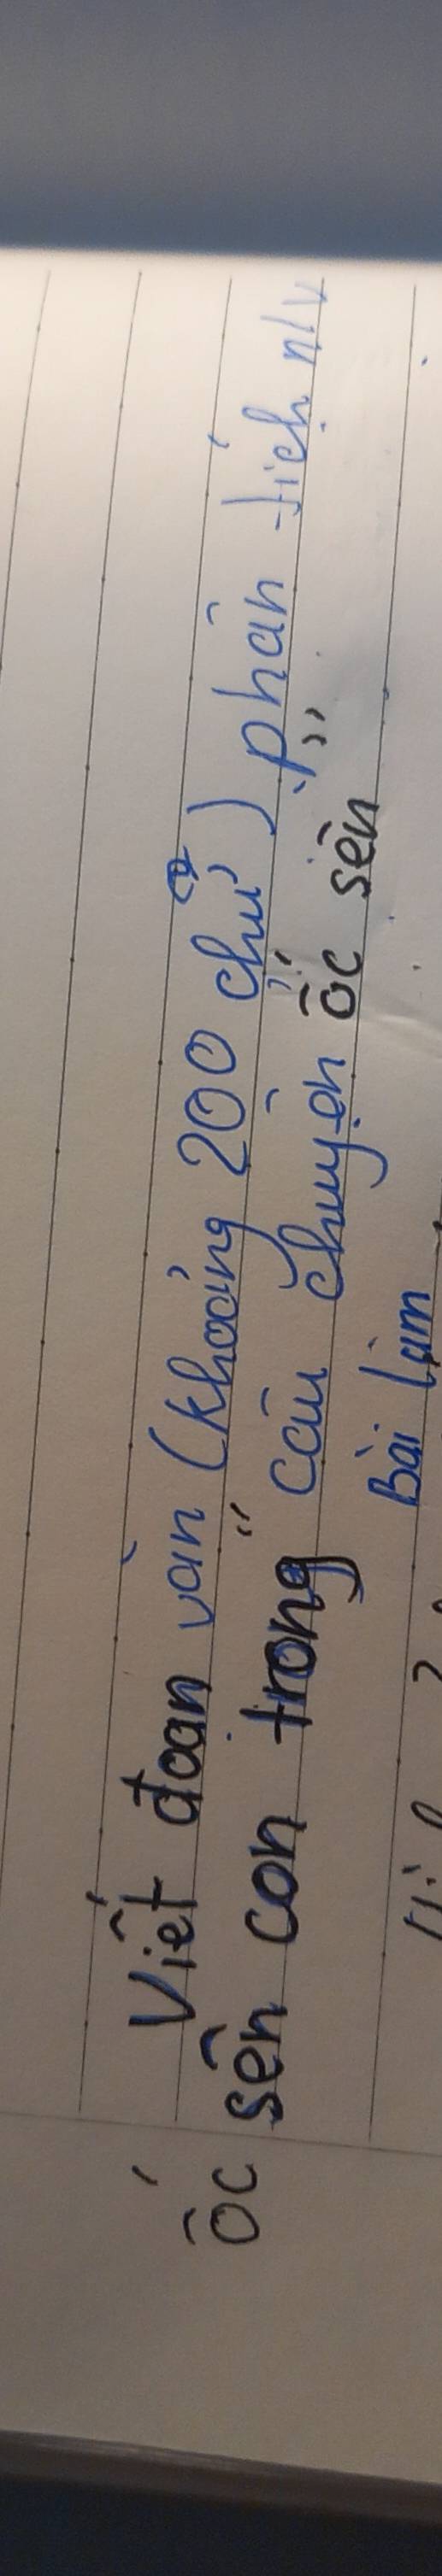 Viết đoạn văn (khoảng 200 chữ) phân tích n/v
ốc sên con trong " câu chuyện ốc sên "
Bài làm